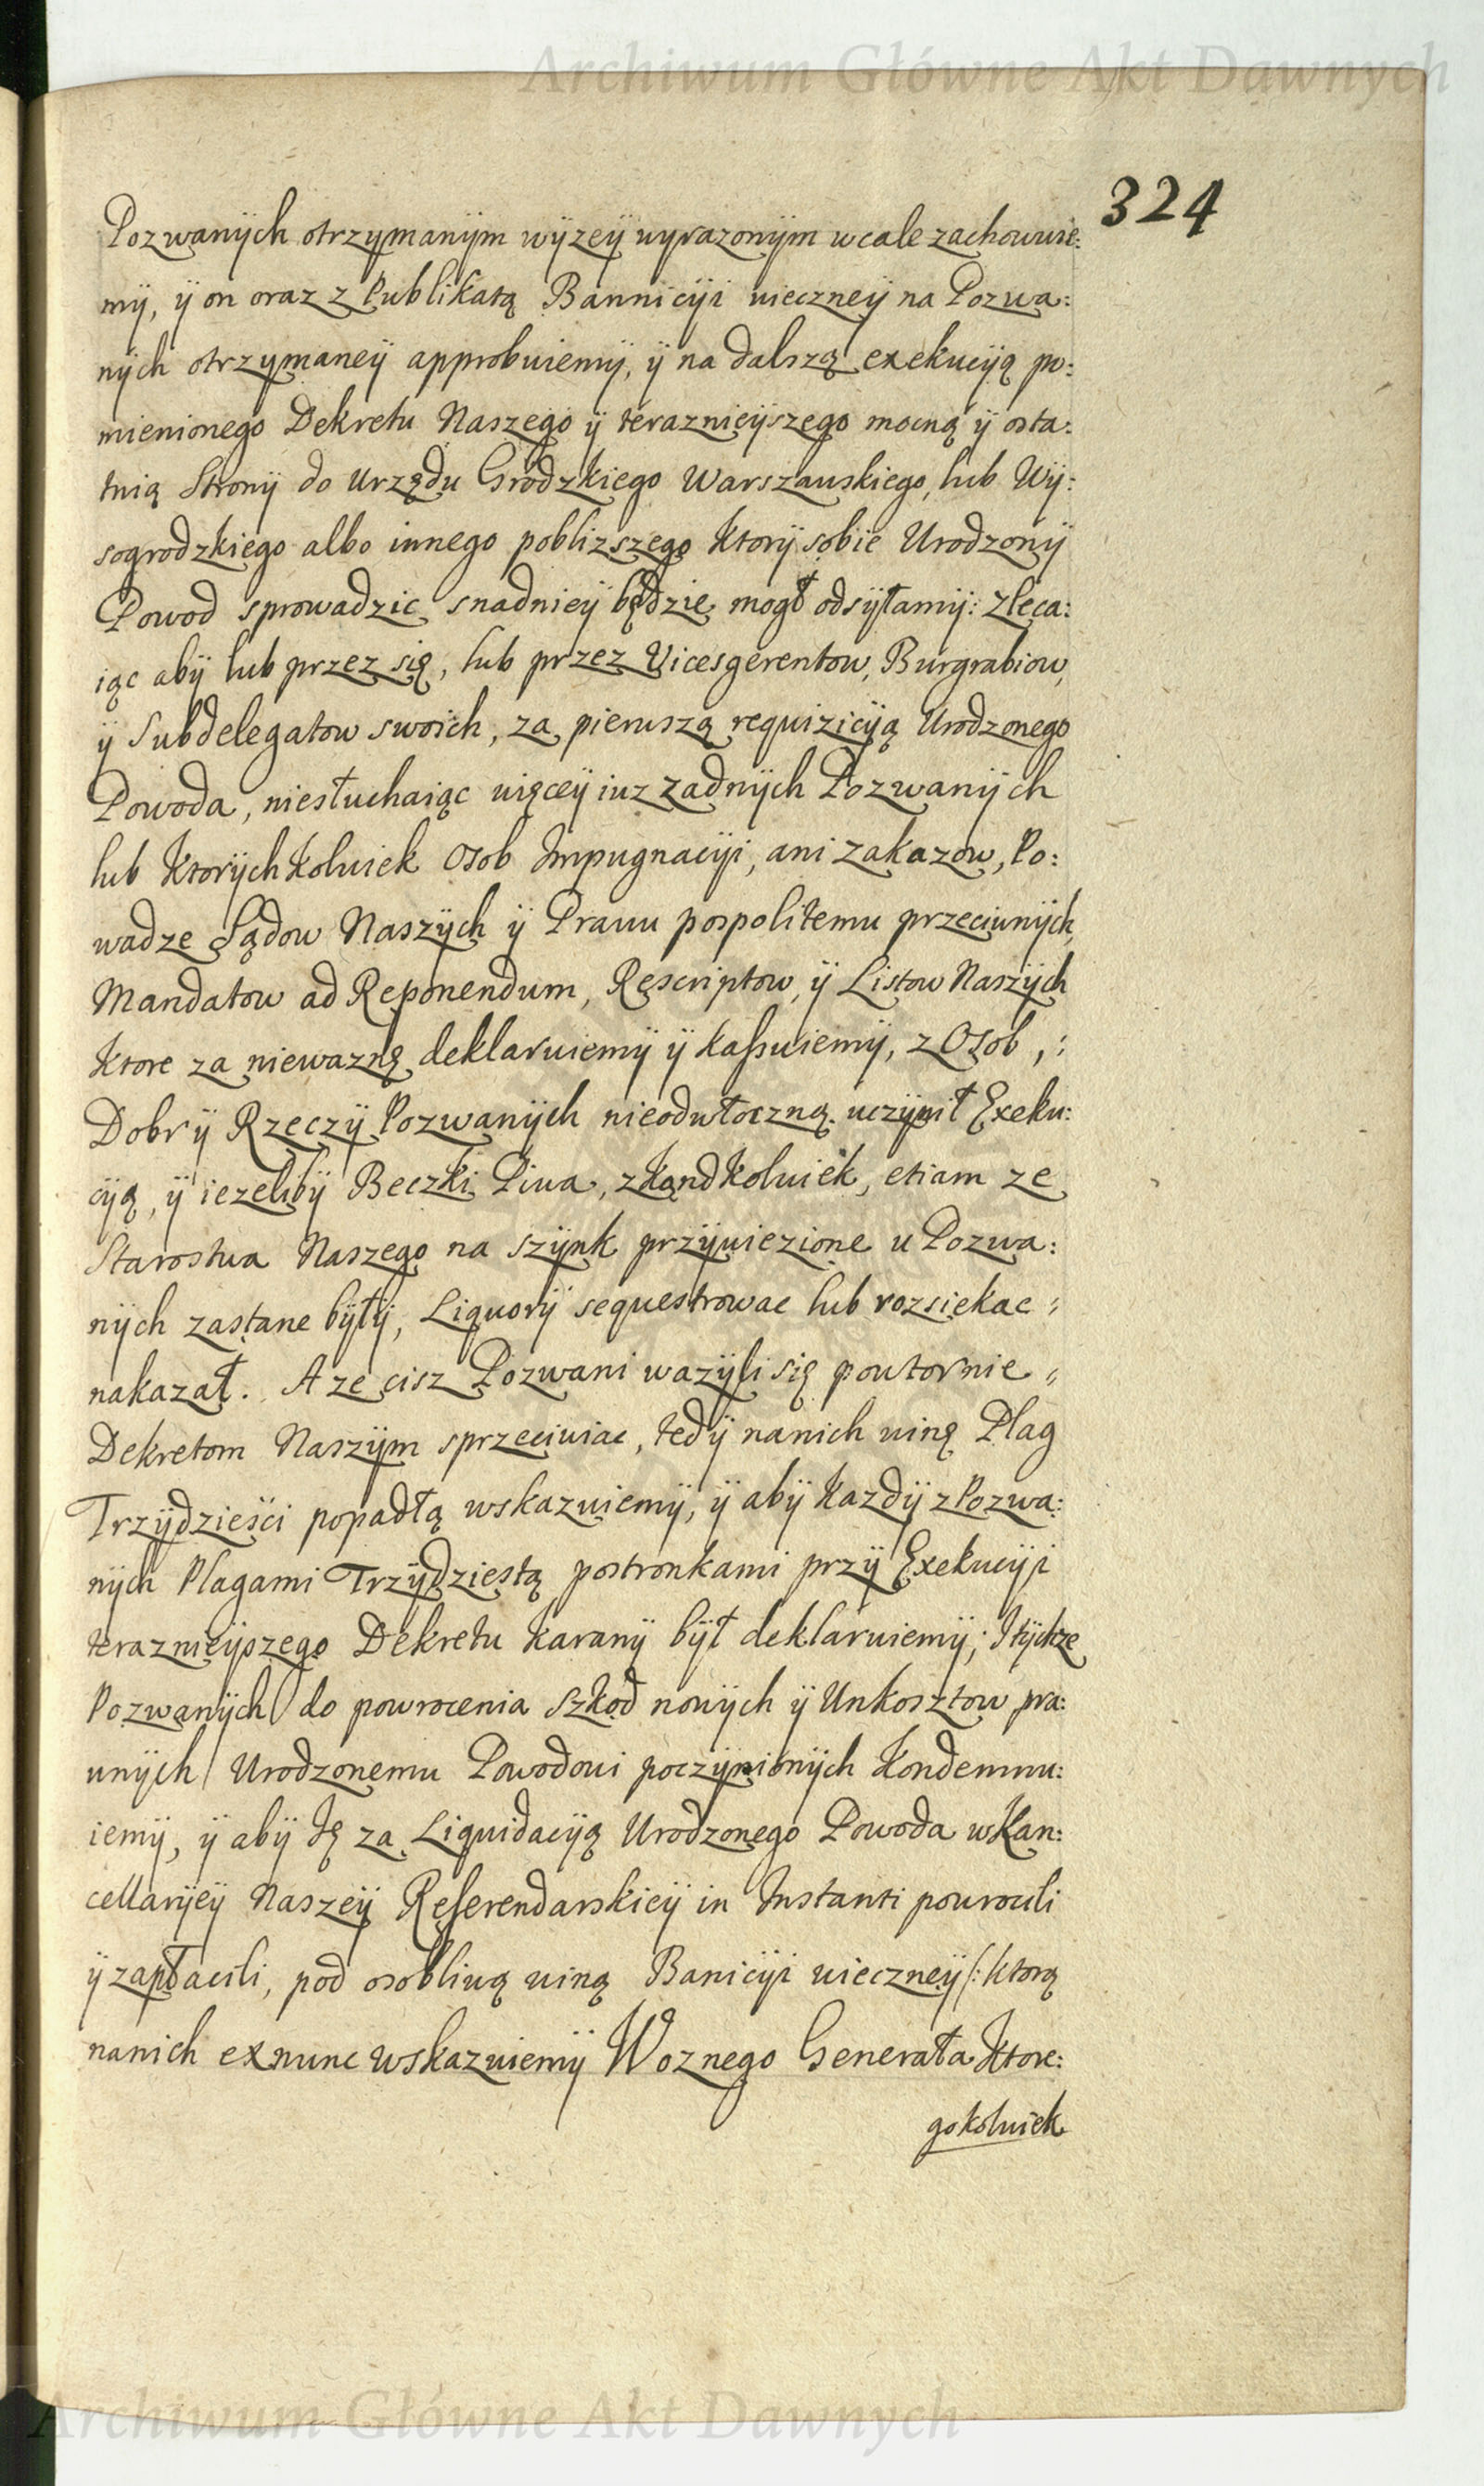 Archiwum Główne Akt Dawnych
324
Pozwanÿch otrzymanÿm wÿzeÿ wyrazonÿm wcale zachowuie:
mÿ, ÿ on oraz z Publikatą Bannicÿi wieczneÿ na Pozwa:
nÿch otrzÿmaneÿ approbuiemÿ, ÿ na dalszą exekucÿą po:
mienionego Dekretu Naszego ÿ teraznieÿszego mocną ÿ osta:
tnią Stronÿ do Urzędu Grodzkiego Warszawskiego, lub Wÿ:
sogrodzkiego albo innego poblizszego Ktorÿ sobie Urodzonÿ
Powod sprowadzic snadnieÿ będzie mogł odsÿłamÿ: zleca:
iąc abÿ lub przez się, lub przez Vicesgerentow, Burgrabiow,
ÿ Subdelegatow swoich, za pierwszą requizicÿą Urodzonego
Powoda, niesłuchaiąc więceÿ iuz zadnÿch Pozwanÿch
lub Ktorÿchkolwiek Osob Impugnacÿi, ani zakazow, Po:
wadze Sądow Naszÿch ÿ Prawu pospolitemu przeciwnÿch,
Mandatow ad Reponendum, Rescriptow, ÿ Listow Naszÿch
Ktore za niewazną deklaruiemÿ ÿ kassuiemÿ, z Osob, :
Dobr ÿ Rzeczÿ Pozwanÿch nieodwłoczną uczÿnił Exeku:
cÿą, ÿ iezelibÿ Beczki Piwa, zkądkolwiek, etiam ze
Starostwa Naszego na szÿnk przÿwiezione u Pozwa:
nÿch zastane bÿłÿ, Liquorÿ sequestrowac lub rozsiekac "
nakazał. A ze cisz Pozwani wazÿli się powtornie "
Dekretom Naszÿm sprzeciwiac, tedÿ nanich winę Plag
Trzÿdzieści popadłą wskazuiemÿ, ÿ abÿ Kazdÿ z Pozwa:
nÿch Plagami Trzÿdziestą postronkami przÿ Exekucÿi
teraznieÿszego Dekretu Karanÿ bÿł deklaruiemÿ; Itÿchze
Pozwanÿch do powrocenia Szkod nowÿch ÿ Unkosztow pra:
wnÿch Urodzonemu Powodowi poczÿnionÿch Kondemnu:
iemÿ, ÿ abÿ Ię za Liquidacÿą Urodzonego Powoda w Kan:
cellarÿeÿ Naszeÿ Referendarskieÿ in Instanti powrocili
ÿ zapłacili, pod osobliwą winą Banicÿi wieczneÿ /: Ktorą
nanich exnunc wskazuiemÿ Woznego Generała Ktore:
gokolwiek
Archiwum Główne Akt Dawnych